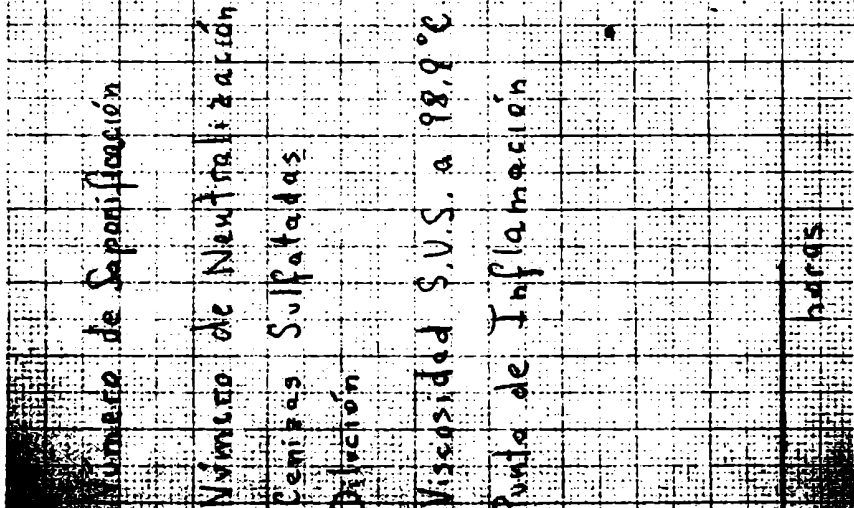 Número de Saponificación
Número de Neutralización
Cenizas Sulfatadas
Dilución
Viscosidad S.U.S. a 98,9°C
Punto de Inflamación
horas